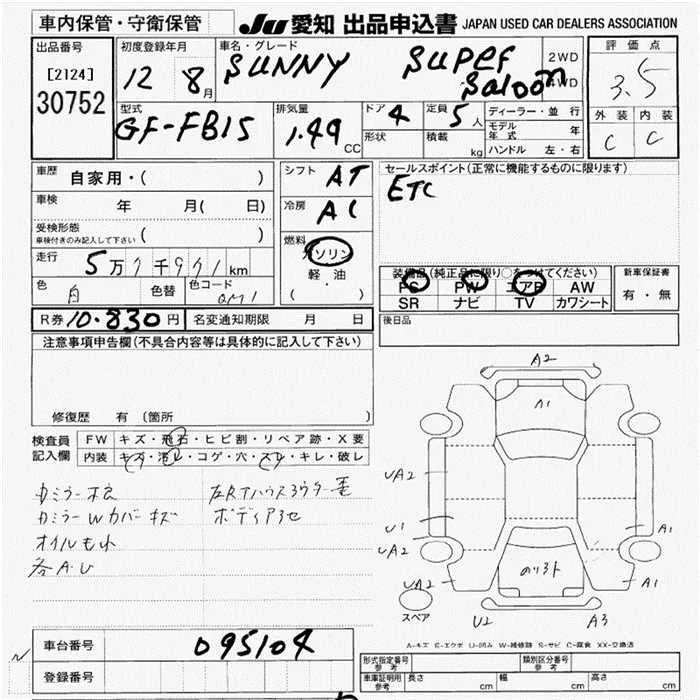 車内保管・守衛保管 JU 愛知 出品申込書 JAPAN USED CAR DEALERS ASSOCIATION
出品番号 [2124] 30752
初度登録年月 12 8月
車名・グレード SUNNY SUPER Saloon 2WD 4WD
評価点 3.5
外装 内装
C C
型式 GF-FB15
排気量 1.49 CC
ドア 4
形状
定員 5人
積載 kg
ディーラー・並行
モデル年式 年
ハンドル 左・右
車歴 自家用・( )
車検 年 月( 日)
受検形態 ( )
車検付きのみ記入して下さい
走行 5万7千971km
色 白 色替 色コード QM1
シフト AT
冷房 AC
燃料 ガソリン
軽・油
( ・ )
セールスポイント(正常に機能するものに限ります)
ETC
装備品(純正品に限り○をつけてください)
PS PW エアB AW
SR ナビ TV カワシート
新車保証書
有・無
R券 10.830円 名変通知期限 月 日
後日品
注意事項申告欄(不具合内容等は具体的に記入して下さい)
修復歴 有 (箇所
検査員記入欄
FW キズ・飛石・ヒビ割・リペア跡・X要
内装 キズ・汚レ・コゲ・穴・スレ・キレ・破レ
カミラーWカバーキズ
オイルもれ
各A.U
A2
A1
UA2
U1
UA2
UA2
A1
A1
スペア
U2 A3
A-キズ E-エクボ U-凹み W-補修跡 S-サビ C-腐食 XX-交換済
車台番号 095104
登録番号
形式指定番号 参考
類別区分番号 参考
車庫証明用 参考 長さ cm 幅 cm 高さ cm